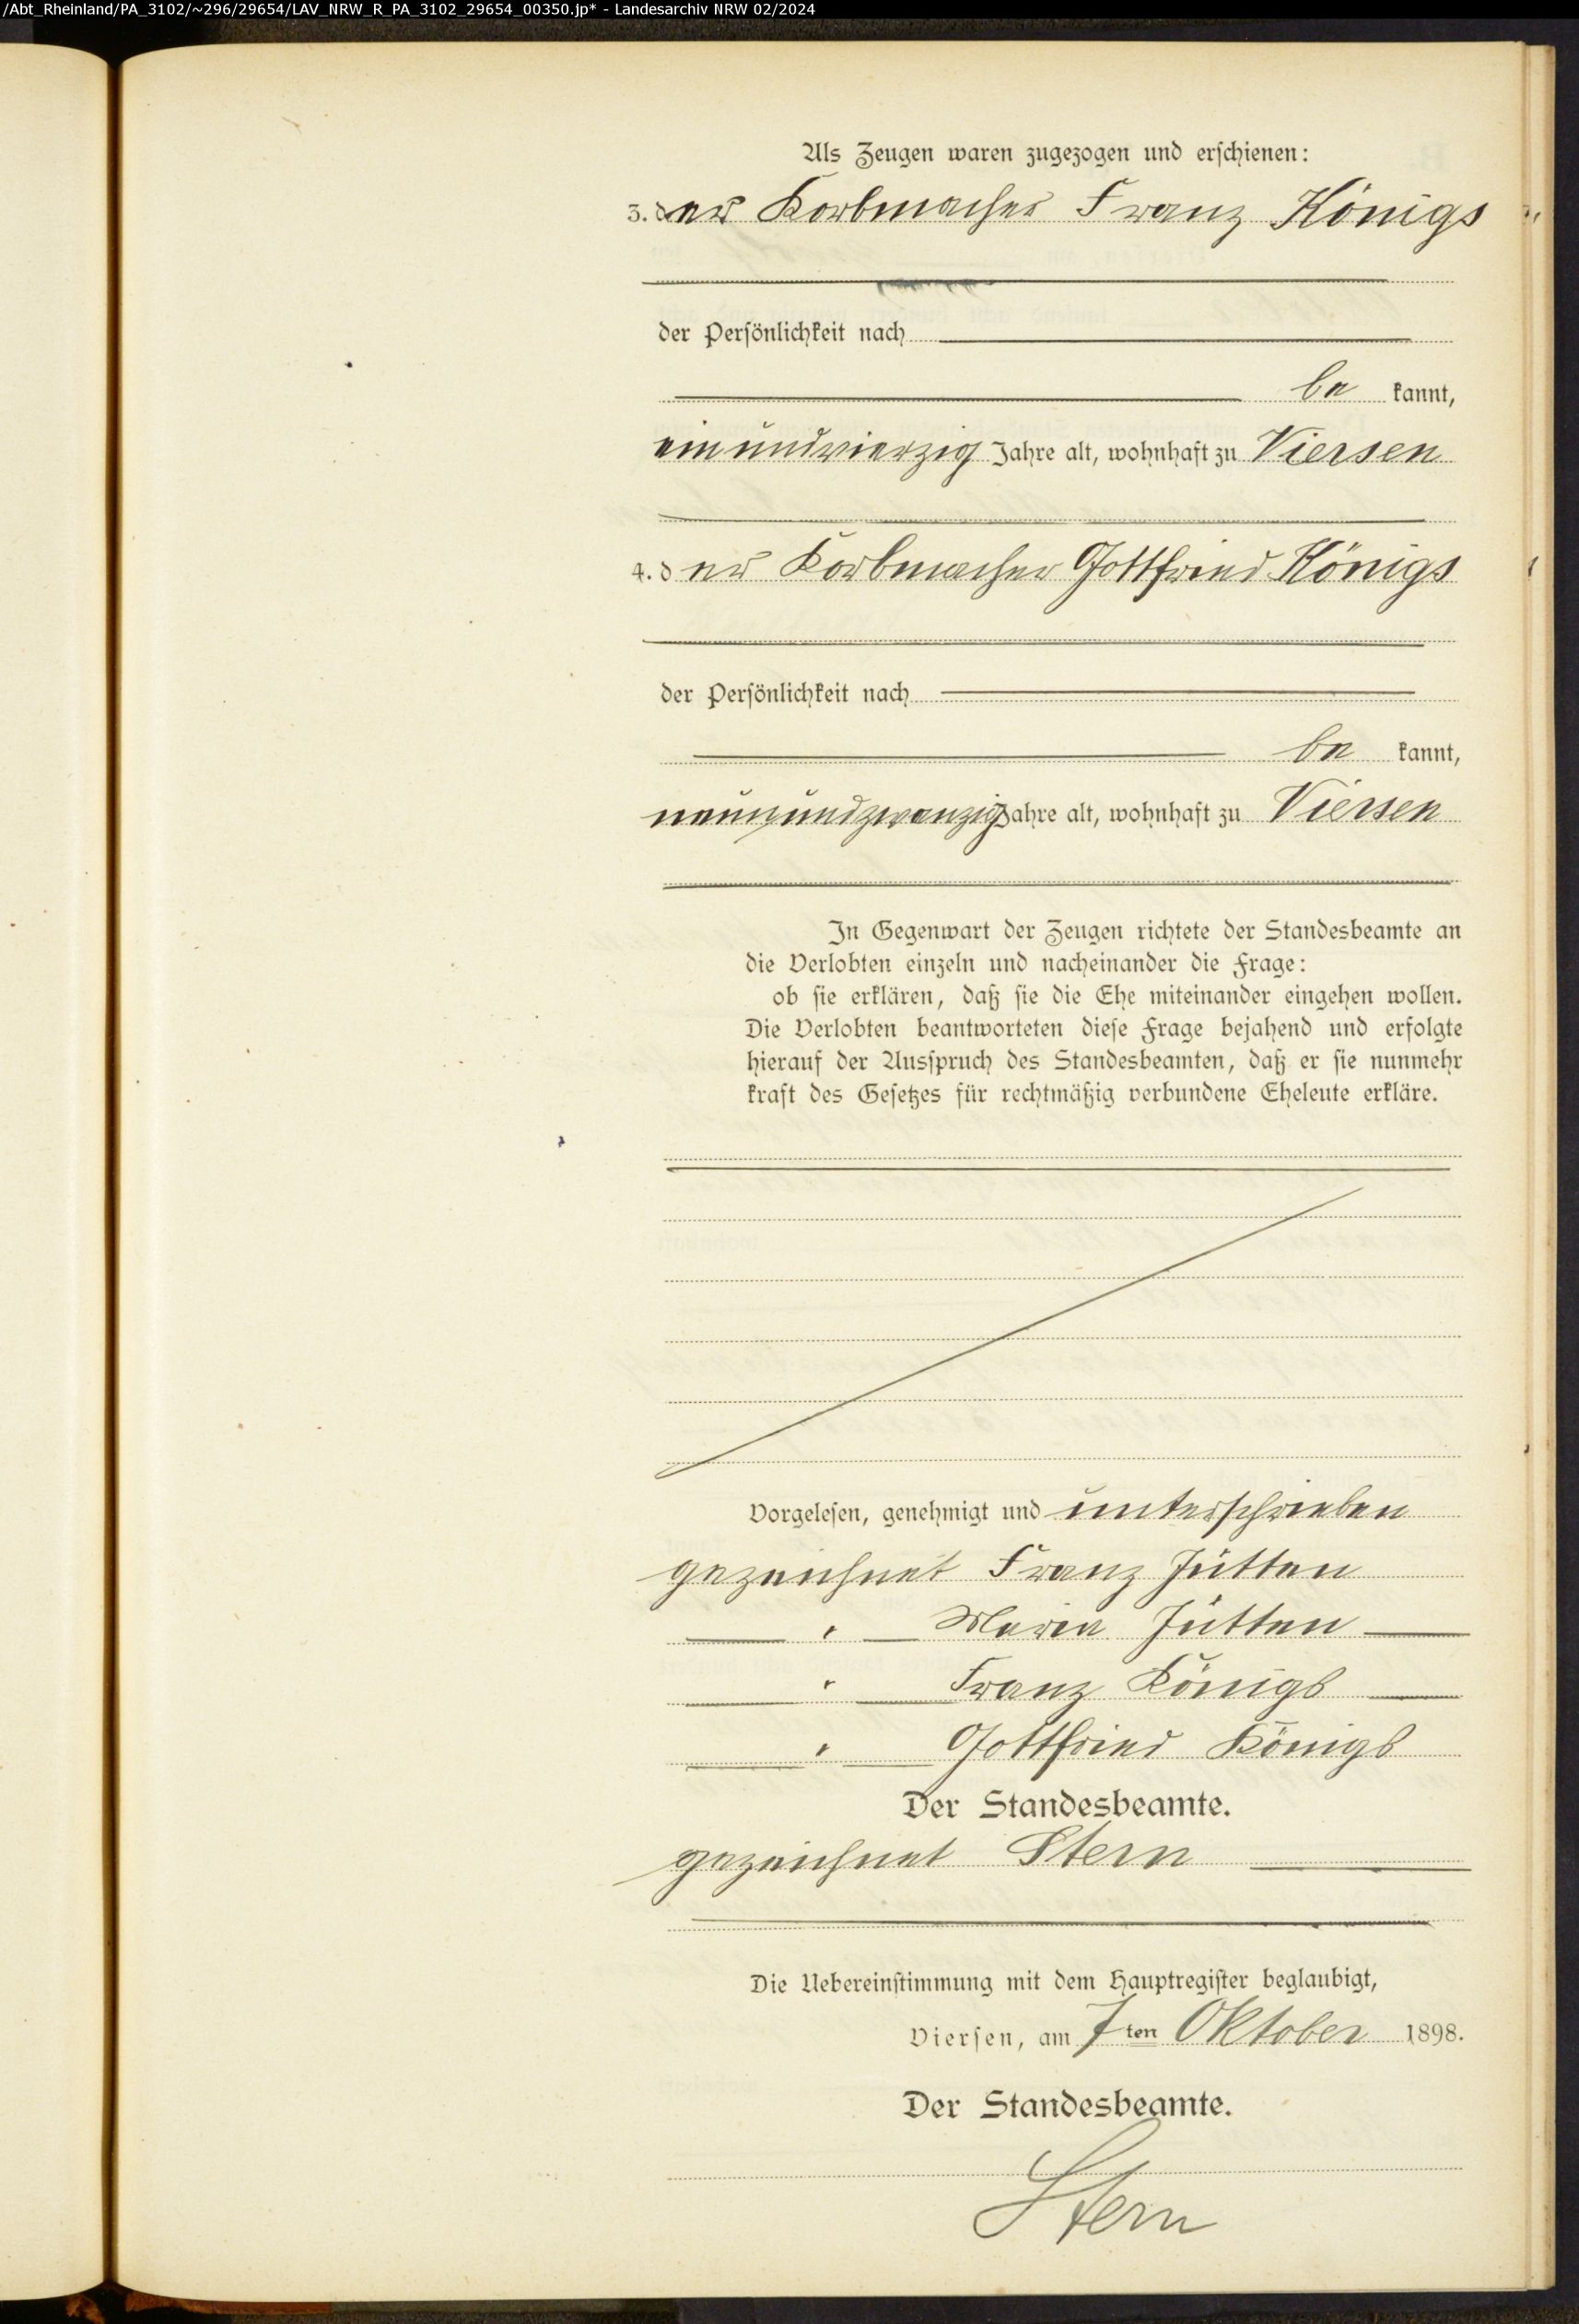 /Abt_Rheinland/PA_3102/~296/29654/LAV_NRW_R_PA_3102_29654_00350.jp* - Landesarchiv NRW 02/2024
Als Zeugen waren zugezogen und erschienen:
3. der Korbmacher Franz Königs
der Persönlichkeit nach
be kannt,
einundvierzig Jahre alt, wohnhaft zu Viersen
4. der Korbmacher Gottfried Königs
der Persönlichkeit nach
be kannt,
neunundzwanzig Jahre alt, wohnhaft zu Viersen
In Gegenwart der Zeugen richtete der Standesbeamte an
die Verlobten einzeln und nacheinander die Frage:
ob sie erklären, daß sie die Ehe miteinander eingehen wollen.
Die Verlobten beantworteten diese Frage bejahend und erfolgte
hierauf der Ausspruch des Standesbeamten, daß er sie nunmehr
kraft des Gesetzes für rechtmäßig verbundene Eheleute erkläre.
Vorgelesen, genehmigt und unterschrieben
gezeichnet Franz Jütten
" Maria Jütten
" Franz Königs
" Gottfried Königs
Der Standesbeamte.
gezeichnet Stern
Die Uebereinstimmung mit dem Hauptregister beglaubigt,
Viersen, am 7ten Oktober 1898.
Der Standesbeamte.
Stern